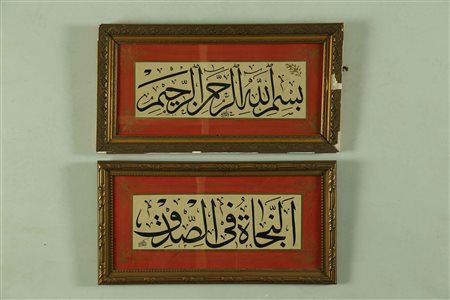 بِسْمِ اللّٰهِ الرَّحْمٰنِ الرَّحِيمِ
النَّجَاةُ فِي الصِّدْقِ